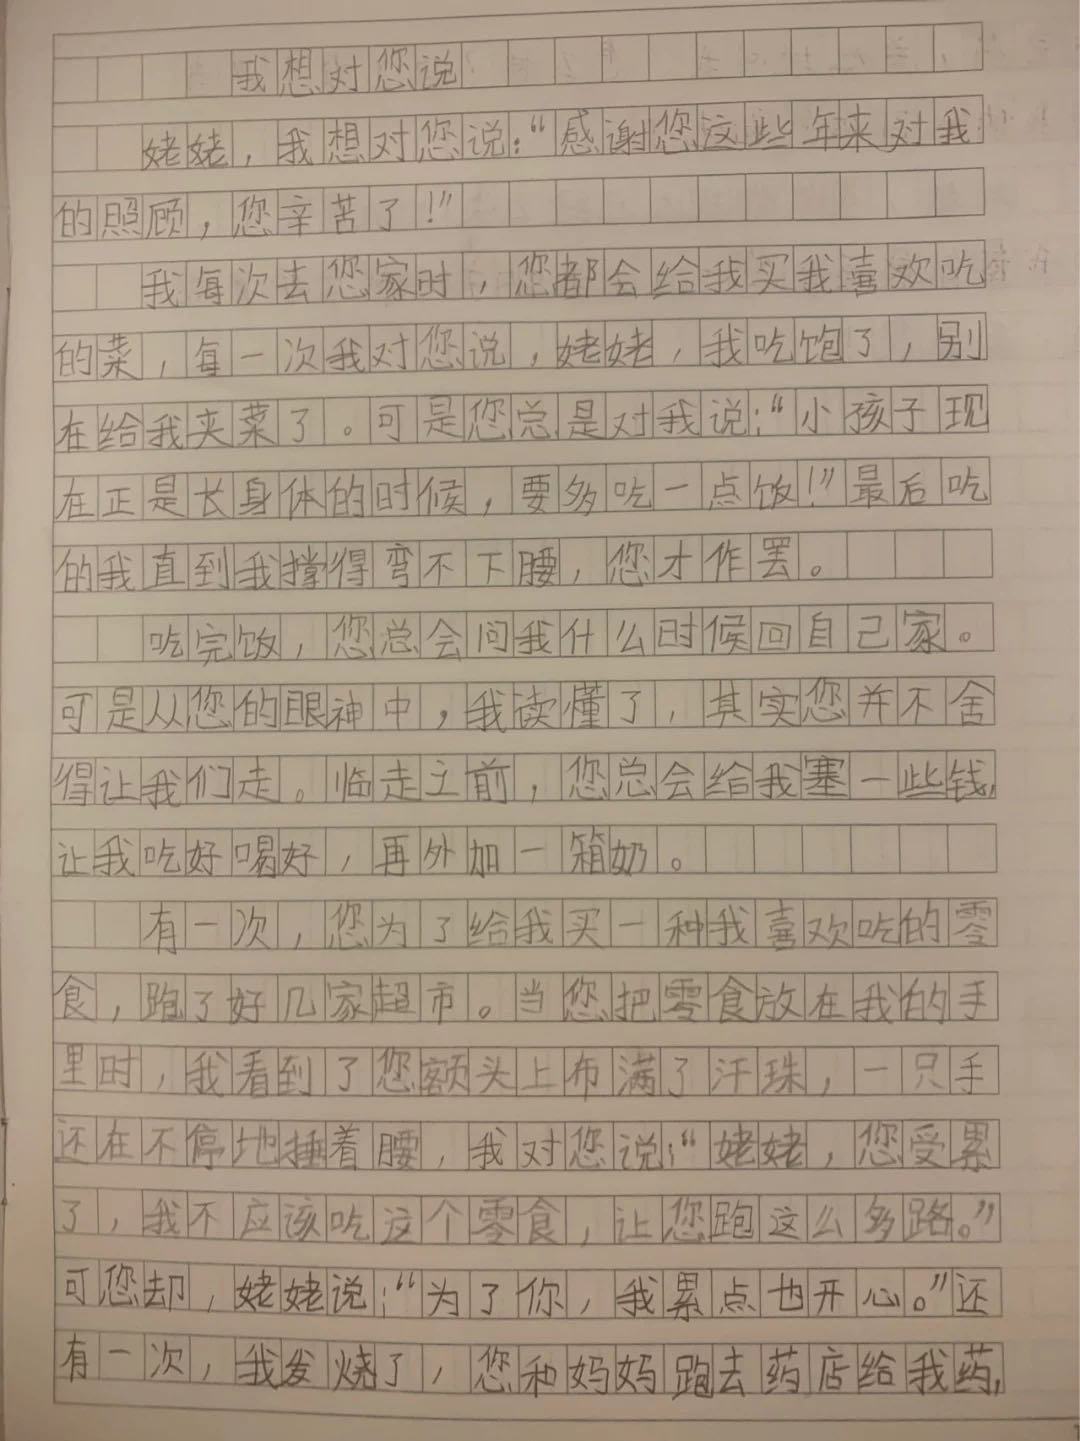 我想对您说
姥姥，我想对您说：“感谢您这些年来对我
的照顾，您辛苦了！”
我每次去您家时，您都会给我买我喜欢吃
的菜，每一次我对您说，姥姥，我吃饱了，别
在给我夹菜了。可是您总是对我说：“小孩子现
在正是长身体的时候，要多吃一点饭！”最后吃
的我直到我撑得弯不下腰，您才作罢。
吃完饭，您总会问我什么时候回自己家。
可是从您的眼神中，我读懂了，其实您并不舍
得让我们走。临走之前，您总会给我塞一些钱，
让我吃好喝好，再外加一箱奶。
有一次，您为了给我买一种我喜欢吃的零
食，跑了好几家超市。当您把零食放在我的手
里时，我看到了您额头上布满了汗珠，一只手
还在不停地捶着腰，我对您说：“姥姥，您受累
了，我不应该吃这个零食，让您跑这么多路。”
可您却，姥姥说：“为了你，我累点也开心。”还
有一次，我发烧了，您和妈妈跑去药店给我药，